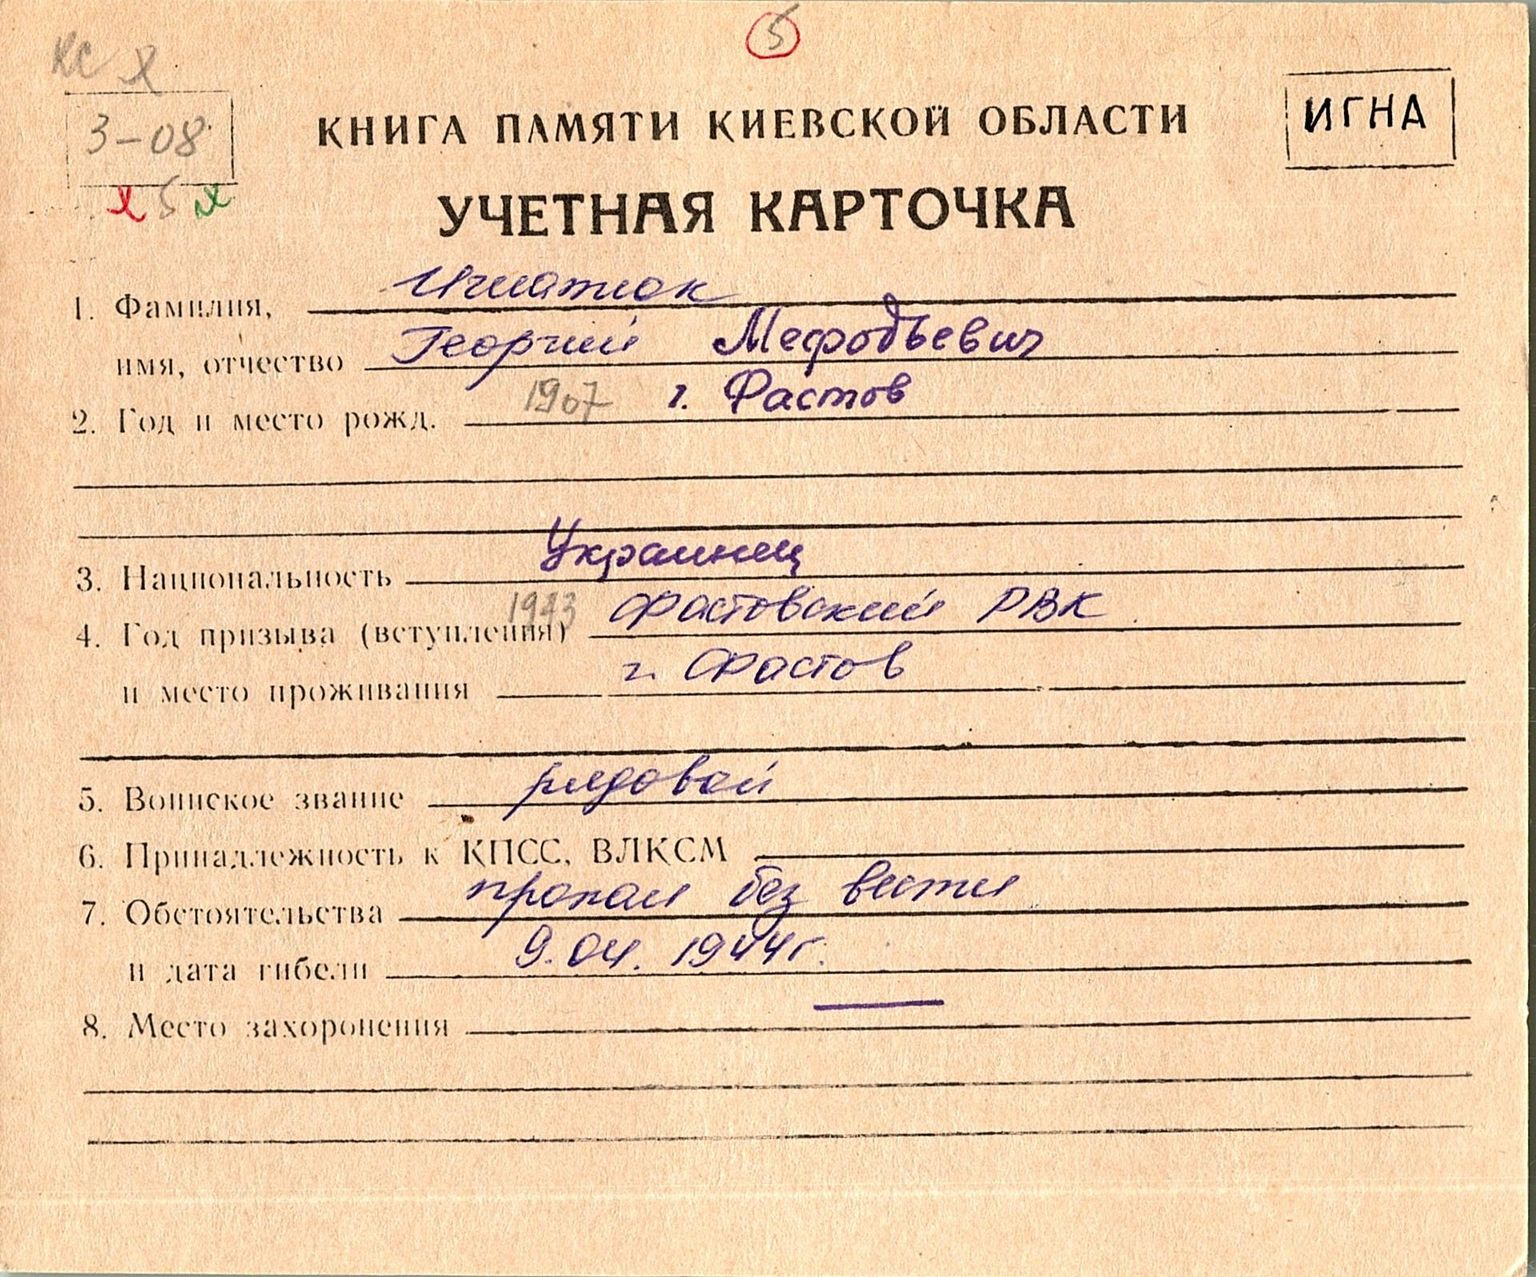 5
КС
3-08
ИГНА
КНИГА ПАМЯТИ КИЕВСКОЙ ОБЛАСТИ
5
УЧЕТНАЯ КАРТОЧКА
1. Фамилия, Игнатюк
имя, отчество Георгий Мефодьевич
2. Год и место рожд. 1907 г. Фастов
3. Национальность Украинец
4. Год призыва (вступления) 1943 Фастовский РВК
и место проживания г. Фастов
5. Воинское звание рядовой
6. Принадлежность к КПСС, ВЛКСМ
7. Обстоятельства пропал без вести
и дата гибели 9.04.1944г.
8. Место захоронения —